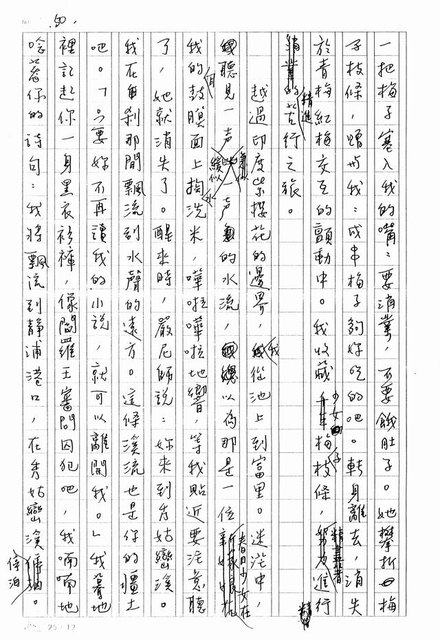 50.
一把梅子塞入我的嘴:要消業,不要餓肚子。她攀折梅
子枝條,贈與我:成串梅子夠好吃的吧。轉身離去,消失
於青梅紅梅交互的顫動中。我收藏少女梅子枝條,進行
精進的苦行之旅。
越過印度紫檀花的邊界,我從池上到富里。迷茫中,
聽見一声一声的水流,以為那是一位春日少女在
我的鼓膜面上掏洗米,嘩啦嘩啦地響,等我貼近要注意聽
了,她就消失了。醒來時,嚴尼師說:妳來到秀姑巒溪。
我在自剎那間飄流到水聲的遠方。這條溪流也是你的疆土
吧。「只要妳不再讀我的小說,就可以離開我。」我驀地
裡記起你一身黑衣衫褲,像閻羅王審問囚犯吧,我喃喃地
唸著你的詩句:我將飄流到靜浦港口,在秀姑巒溪停泊。
25×12